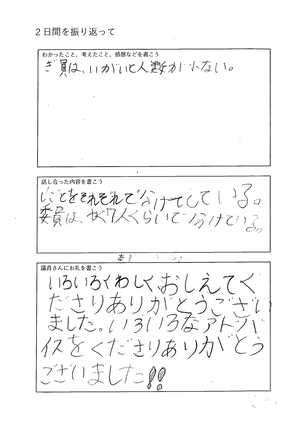 2日間を振り返って
わかったこと、考えたこと、感想などを書こう
ぎ員は、いがいと人数が少ない。
話し合った内容を書こう
しごとをそれぞれで分けてしている。
委員は、やく7人くらいで分けている。
議員さんにお礼を書こう
いろいろくわしくおしえてく
ださりありがとうござい
ました。いろいろなアドバ
イスをくださりありがとう
ございました!!